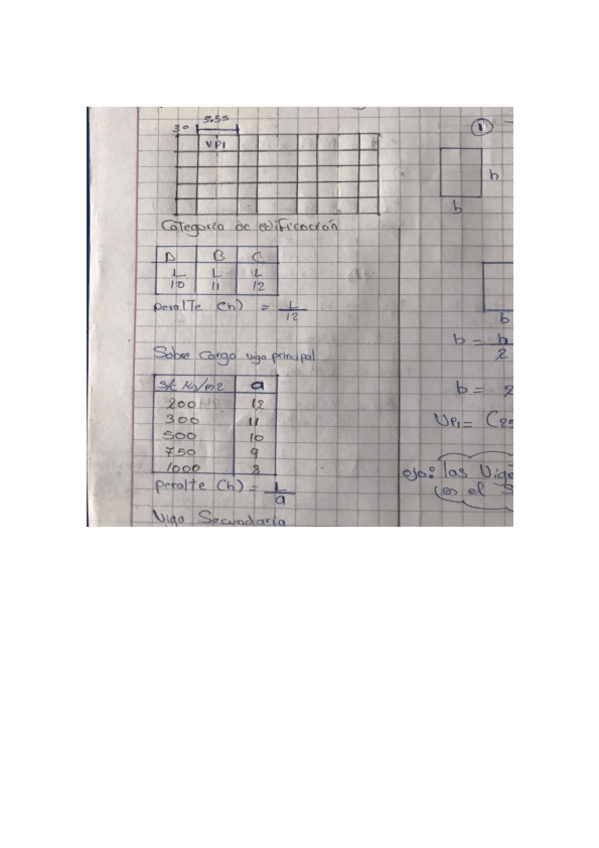 5.50
30
VP1
Categoria de edificación
A B C
L L L
10 11 12
peralte (h) = L
12
Sobre carga viga principal
s/c Kg/m2 a
200 12
300 11
500 10
750 9
1000 8
peralte (h) = L
a
Viga Secundaria
1
h
b
b
b = h
2
b =
VP1 = (25
ojo: las Viga
en el